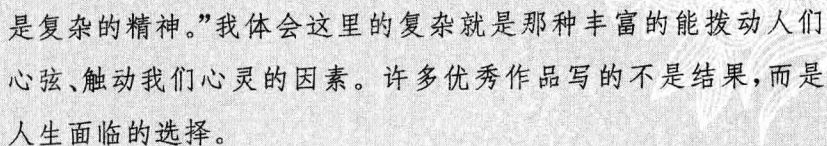 是复杂的精神。”我体会这里的复杂就是那种丰富的能拨动人们
心弦、触动我们心灵的因素。许多优秀作品写的不是结果，而是
人生面临的选择。